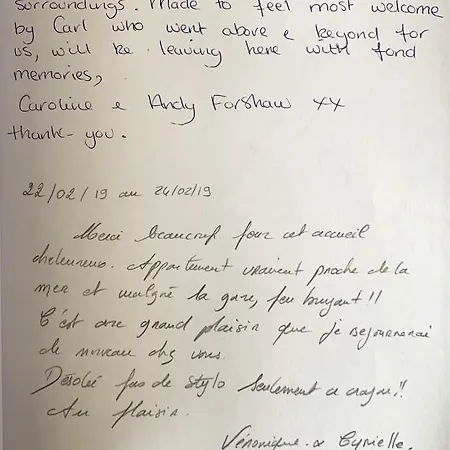 surroundings. Made to feel most welcome
by Carl who went above & beyond for
us, will be leaving here with fond
memories,
Caroline & Andy Forshaw xx
thank-you.
22/02/19 au 24/02/19
Merci beaucoup pour cet accueil
chaleureux. Appartement vraiment proche de la
mer et malgré la gare, peu bruyant!!
C'est avec grand plaisir que je séjournerai
de nouveau chez vous.
Désolée pas de stylo seulement ce crayon!!
Au plaisir.
Véronique & Cyrielle.